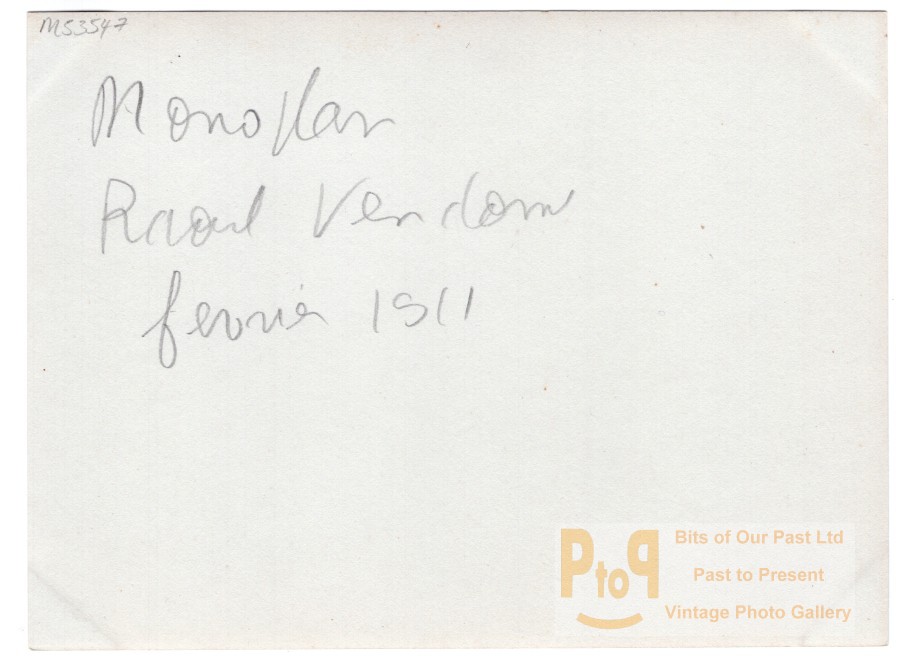 M53547
Monoplan
Raoul Vendome
fevrier 1911
PtoP
Bits of Our Past Ltd
Past to Present
Vintage Photo Gallery